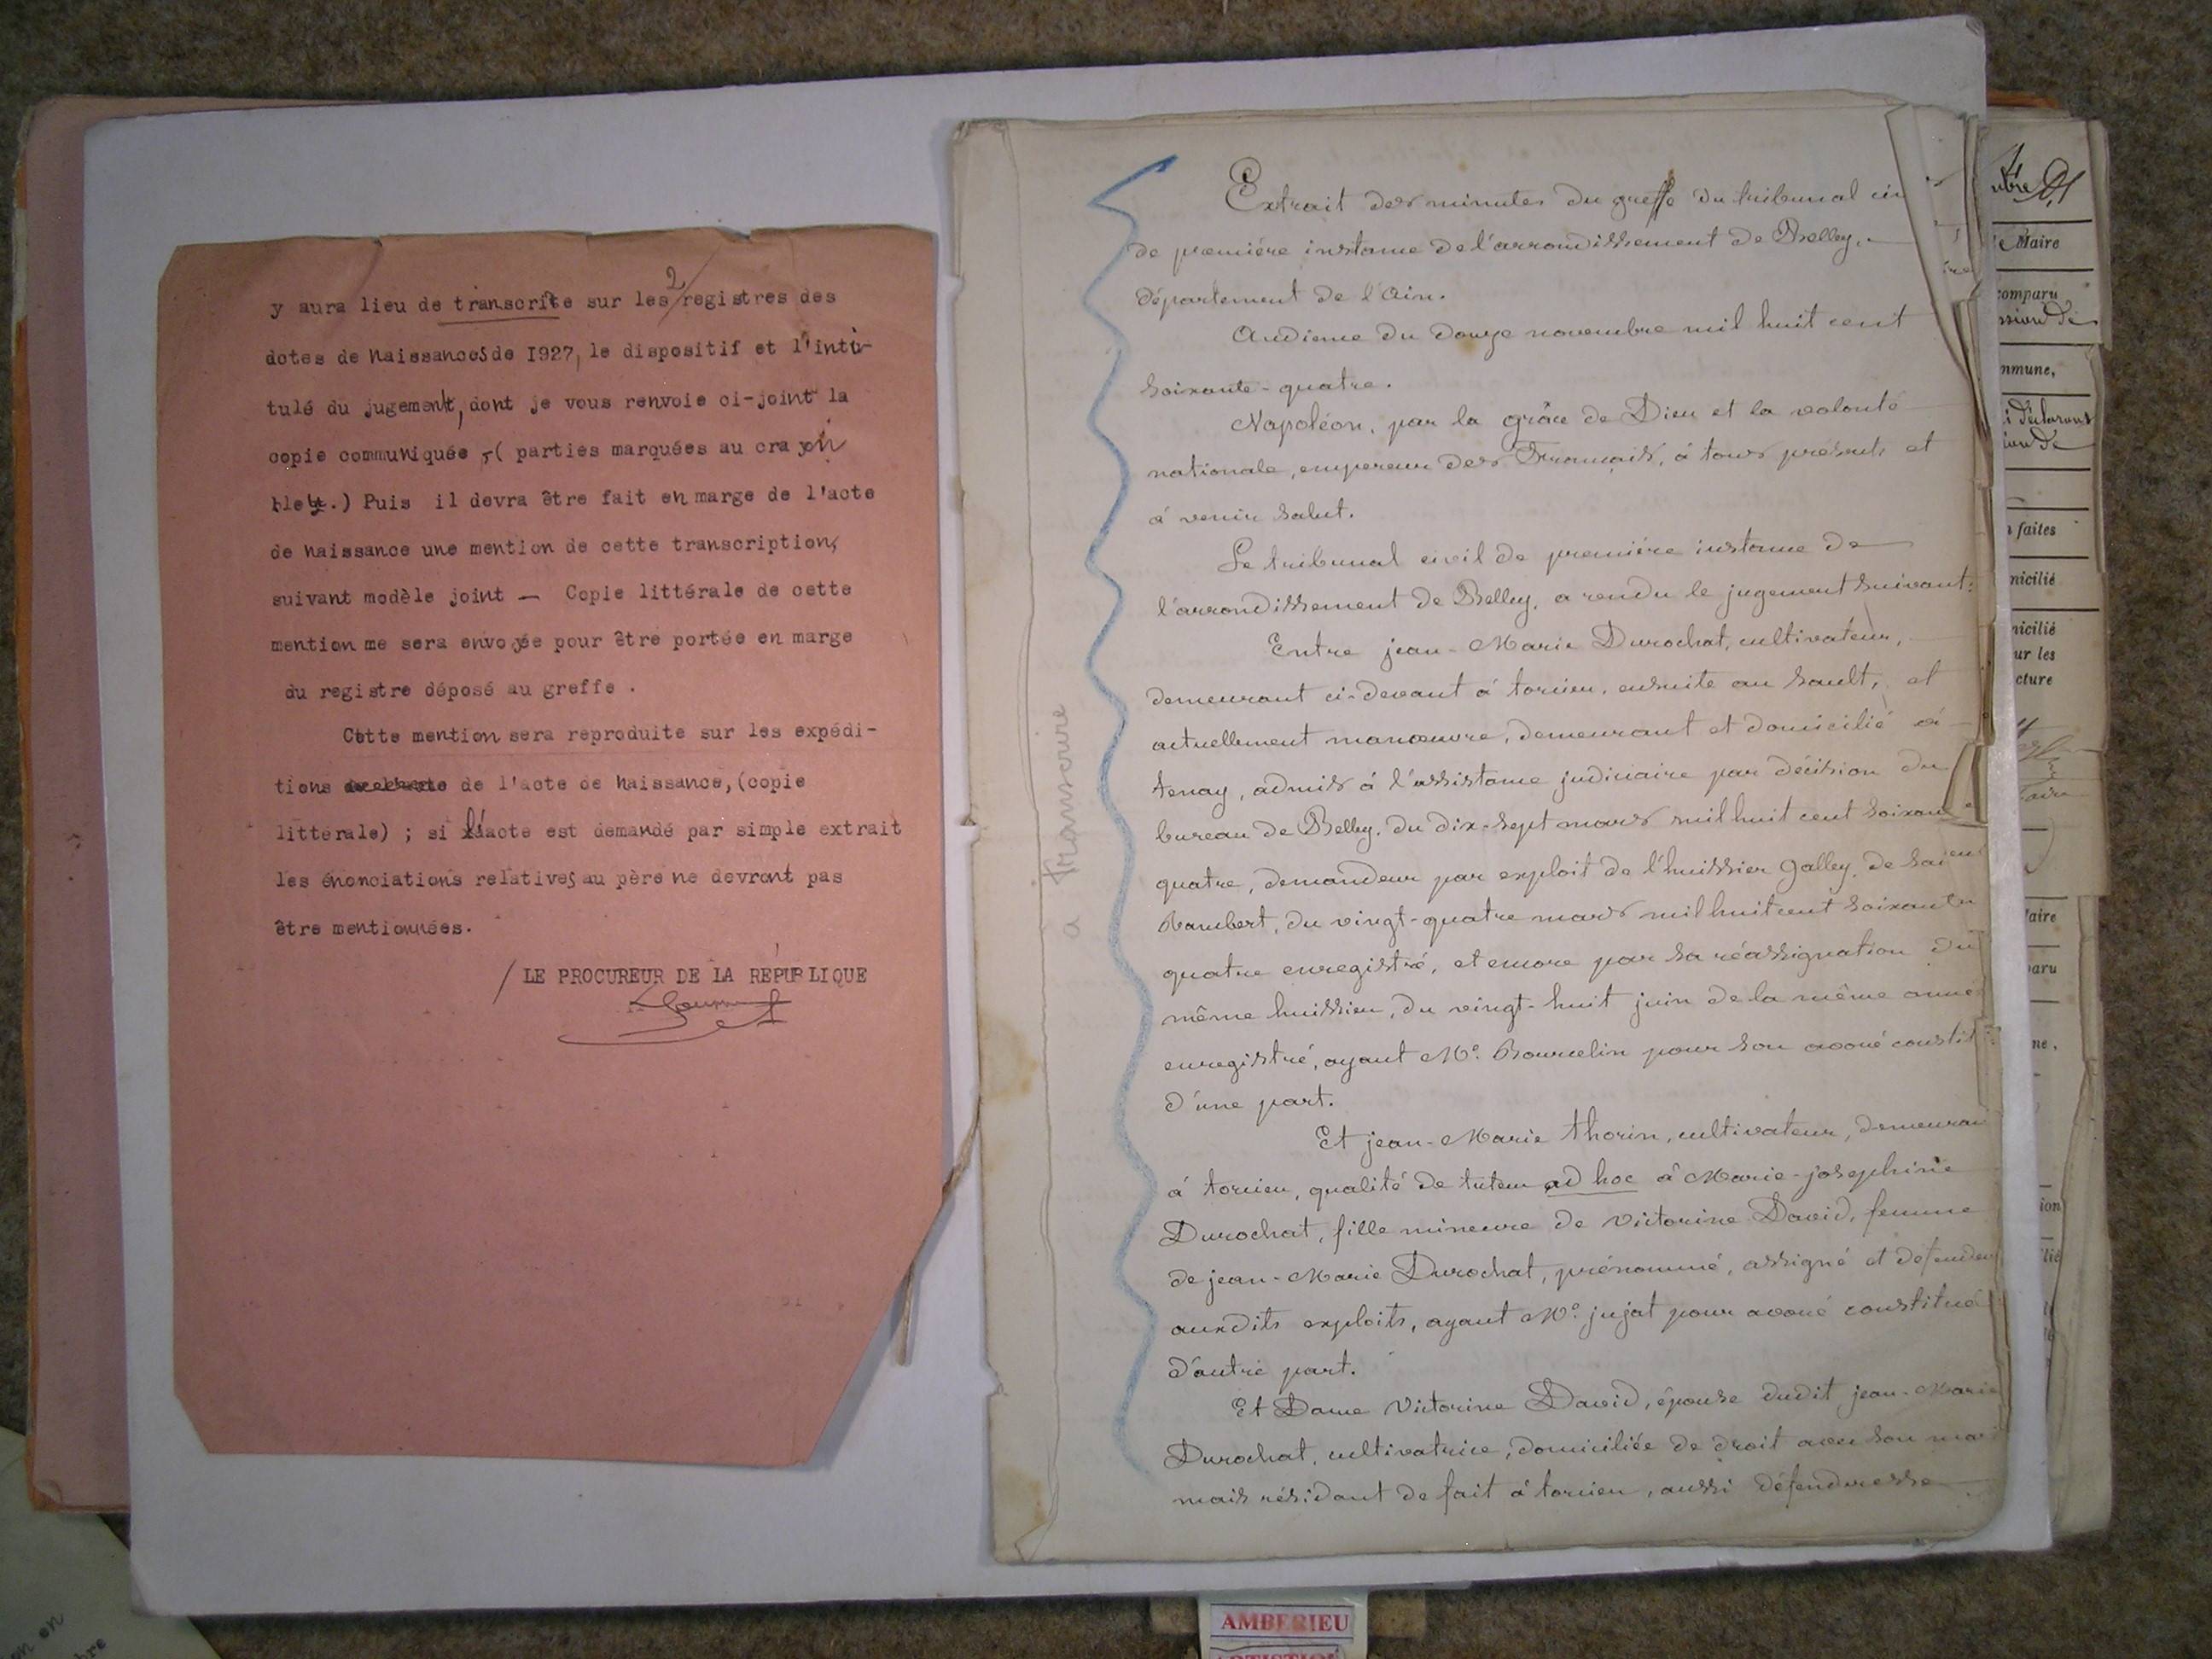 2
y aura lieu de transcrire sur les registres des
actes de naissances de 1927, le dispositif et l'inti-
tulé du jugement, dont je vous renvoie ci-joint la
copie communiquée -( parties marquées au crayon
bleu.) Puis il devra être fait en marge de l'acte
de naissance une mention de cette transcription,
suivant modèle joint — Copie littérale de cette
mention me sera envoyée pour être portée en marge
du registre déposé au greffe .
Cette mention sera reproduite sur les expédi-
tions de l'acte de naissance, (copie
littérale) ; si l'acte est demandé par simple extrait
les énonciations relatives au père ne devront pas
être mentionnées.
/ LE PROCUREUR DE LA REPUBLIQUE
a transcrire
Extrait des minutes du greffe du tribunal civ
de première instance de l'arrondissement de Belley,
département de l'Ain.
Audience du douze novembre mil huit cent
soixante-quatre.
Napoléon, par la grâce de Dieu et la volonté
nationale, empereur des Français, à tous présents et
à venir salut.
Le tribunal civil de première instance de
l'arrondissement de Belley, a rendu le jugement suivant:
Entre jean-Marie Durochat, cultivateur,
demeurant ci-devant à torcieu, ensuite au Sault, et
actuellement manœuvre, demeurant et domicilié à
tenay, admis à l'assistance judiciaire par décision du
bureau de Belley, du dix-sept mars mil huit cent soixante
quatre, demandeur par exploit de l'huissier Galley, de Saint
Rambert, du vingt-quatre mars mil huit cent soixante
quatre enregistré, et encore par sa réassignation du
même huissier, du vingt-huit juin de la même année
enregistré, ayant Me. Bourcelin pour son avoué constit
d'une part.
Et jean-Marie thorin, cultivateur, demeuran
à torcieu, qualité de tuteur ad hoc à Marie-josephine
Durochat, fille mineure de victorine David, femme
de jean-Marie Durochat, prénommé, assigné et défendeur
auxdits exploits, ayant Me. jujat pour avoué constitué
d'autre part.
Et Dame Victorine David, épouse dudit jean-Marie
Durochat, cultivatrice, domiciliée de droit avec son mari
mais résidant de fait à torcieu, aussi défenderesse
Maire
comparu
mmune,
i déclarons
n faites
micilié
micilié
ur les
cture
aire
paru
ne,
ion
AMBERIEU